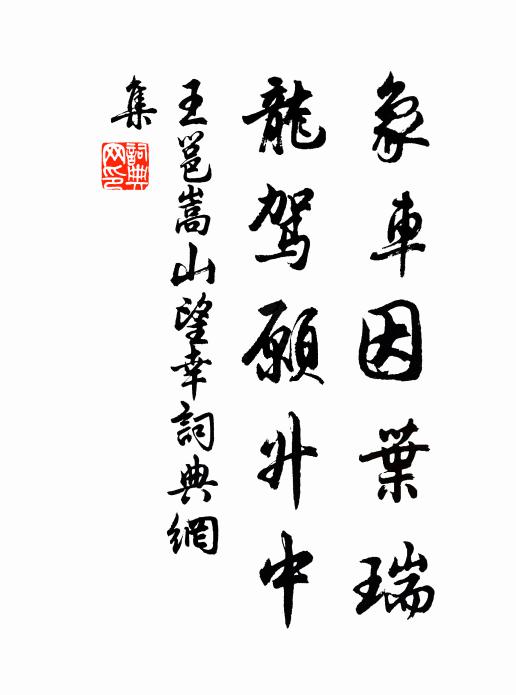 象車因葉瑞
龍駕願升中
王邕嵩山望幸詞典網
集
詞典
网印